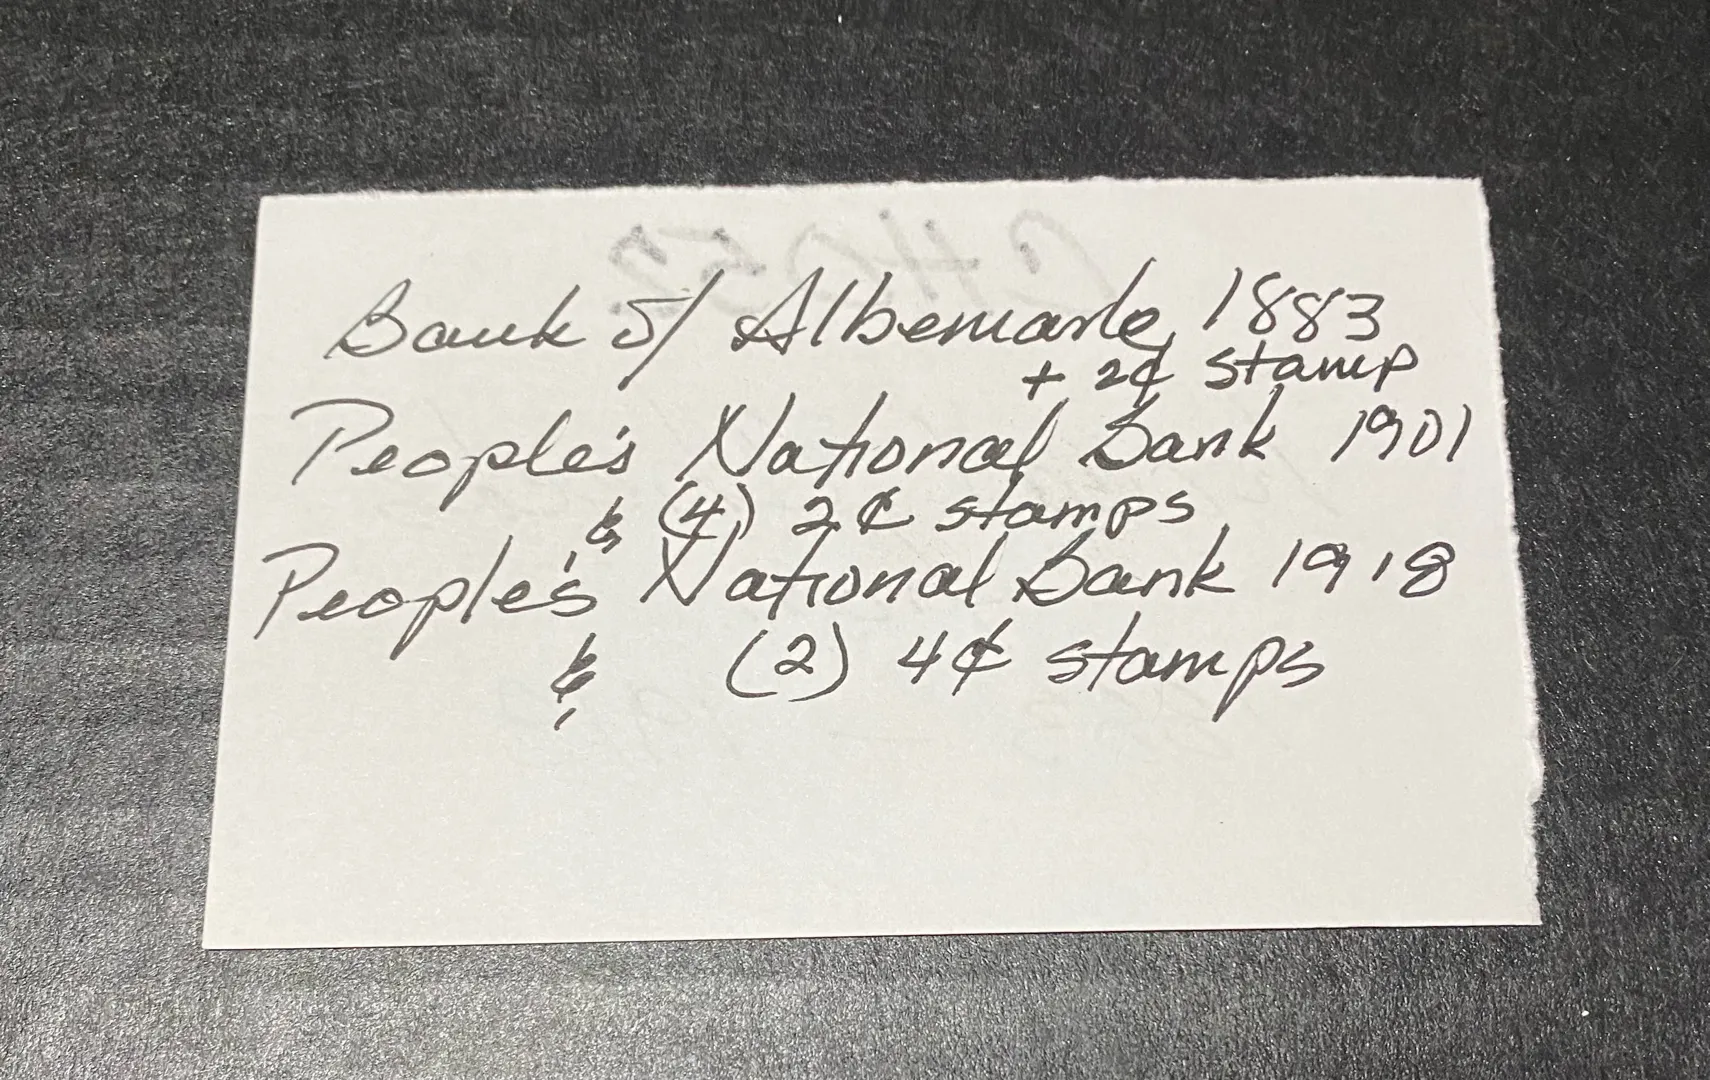 Bank of Albemarle, 1883
+ 2¢ stamp
People's National Bank 1901
& (4) 2¢ stamps
People's National Bank 1918
& (2) 4¢ stamps